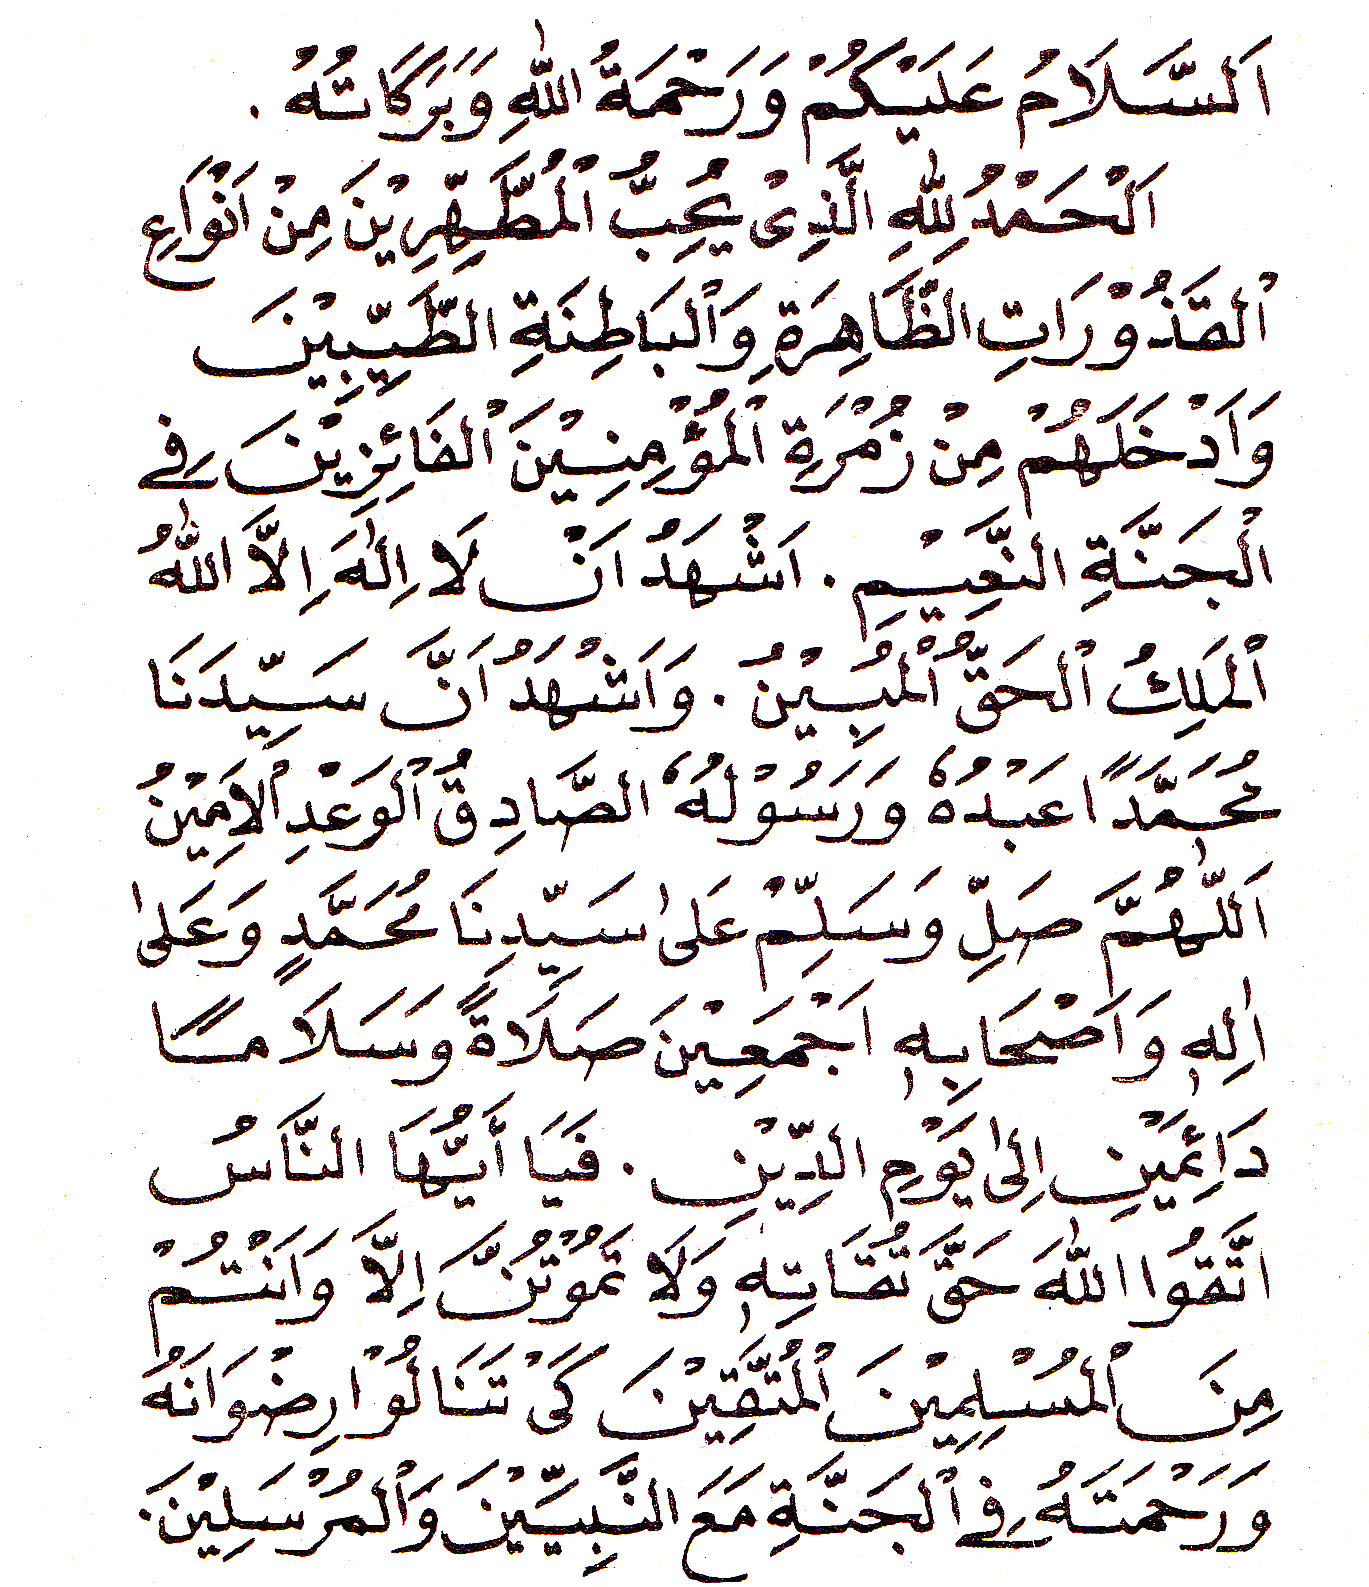 اَلسَّلَامُ عَلَيْكُمْ وَرَحْمَةُ اللهِ وَبَرَكَاتُهُ .
اَلْحَمْدُ لِلهِ الَّذِىْ يُحِبُّ الْمُطَّهِّرِيْنَ مِنْ اَنْوَاعِ
الْقَذُوْرَاتِ الظَّاهِرَةِ وَالْبَاطِنَةِ الطَّيِّبِيْنَ
وَاَدْخَلَهُمْ مِنْ زُمْرَةِ الْمُؤْمِنِيْنَ الْفَائِزِيْنَ فِى
الْجَنَّةِ النَّعِيْمِ . اَشْهَدُ اَنْ لَا اِلٰهَ اِلَّا اللهُ
الْمَلِكُ الْحَقُّ الْمُبِيْنُ . وَاَشْهَدُ اَنَّ سَيِّدَنَا
مُحَمَّدًا عَبْدُهُ وَرَسُوْلُهُ الصَّادِقُ الْوَعْدِ الْاَمِيْنُ
اَللّٰهُمَّ صَلِّ وَسَلِّمْ عَلٰى سَيِّدِنَا مُحَمَّدٍ وَعَلٰى
اٰلِهٖ وَاَصْحَابِهٖ اَجْمَعِيْنَ صَلَاةً وَسَلَامًا
دَائِمَيْنِ اِلٰى يَوْمِ الدِّيْنِ . فَيَا أَيُّهَا النَّاسُ
اتَّقُوا اللهَ حَقَّ تُقَاتِهٖ وَلَا تَمُوْتُنَّ اِلَّا وَاَنْتُمْ
مِنَ الْمُسْلِمِيْنَ الْمُتَّقِيْنَ كَىْ تَنَالُوْا رِضْوَانَهُ
وَرَحْمَتَهُ فِى الْجَنَّةِ مَعَ النَّبِيِّيْنَ وَالْمُرْسَلِيْنَ.